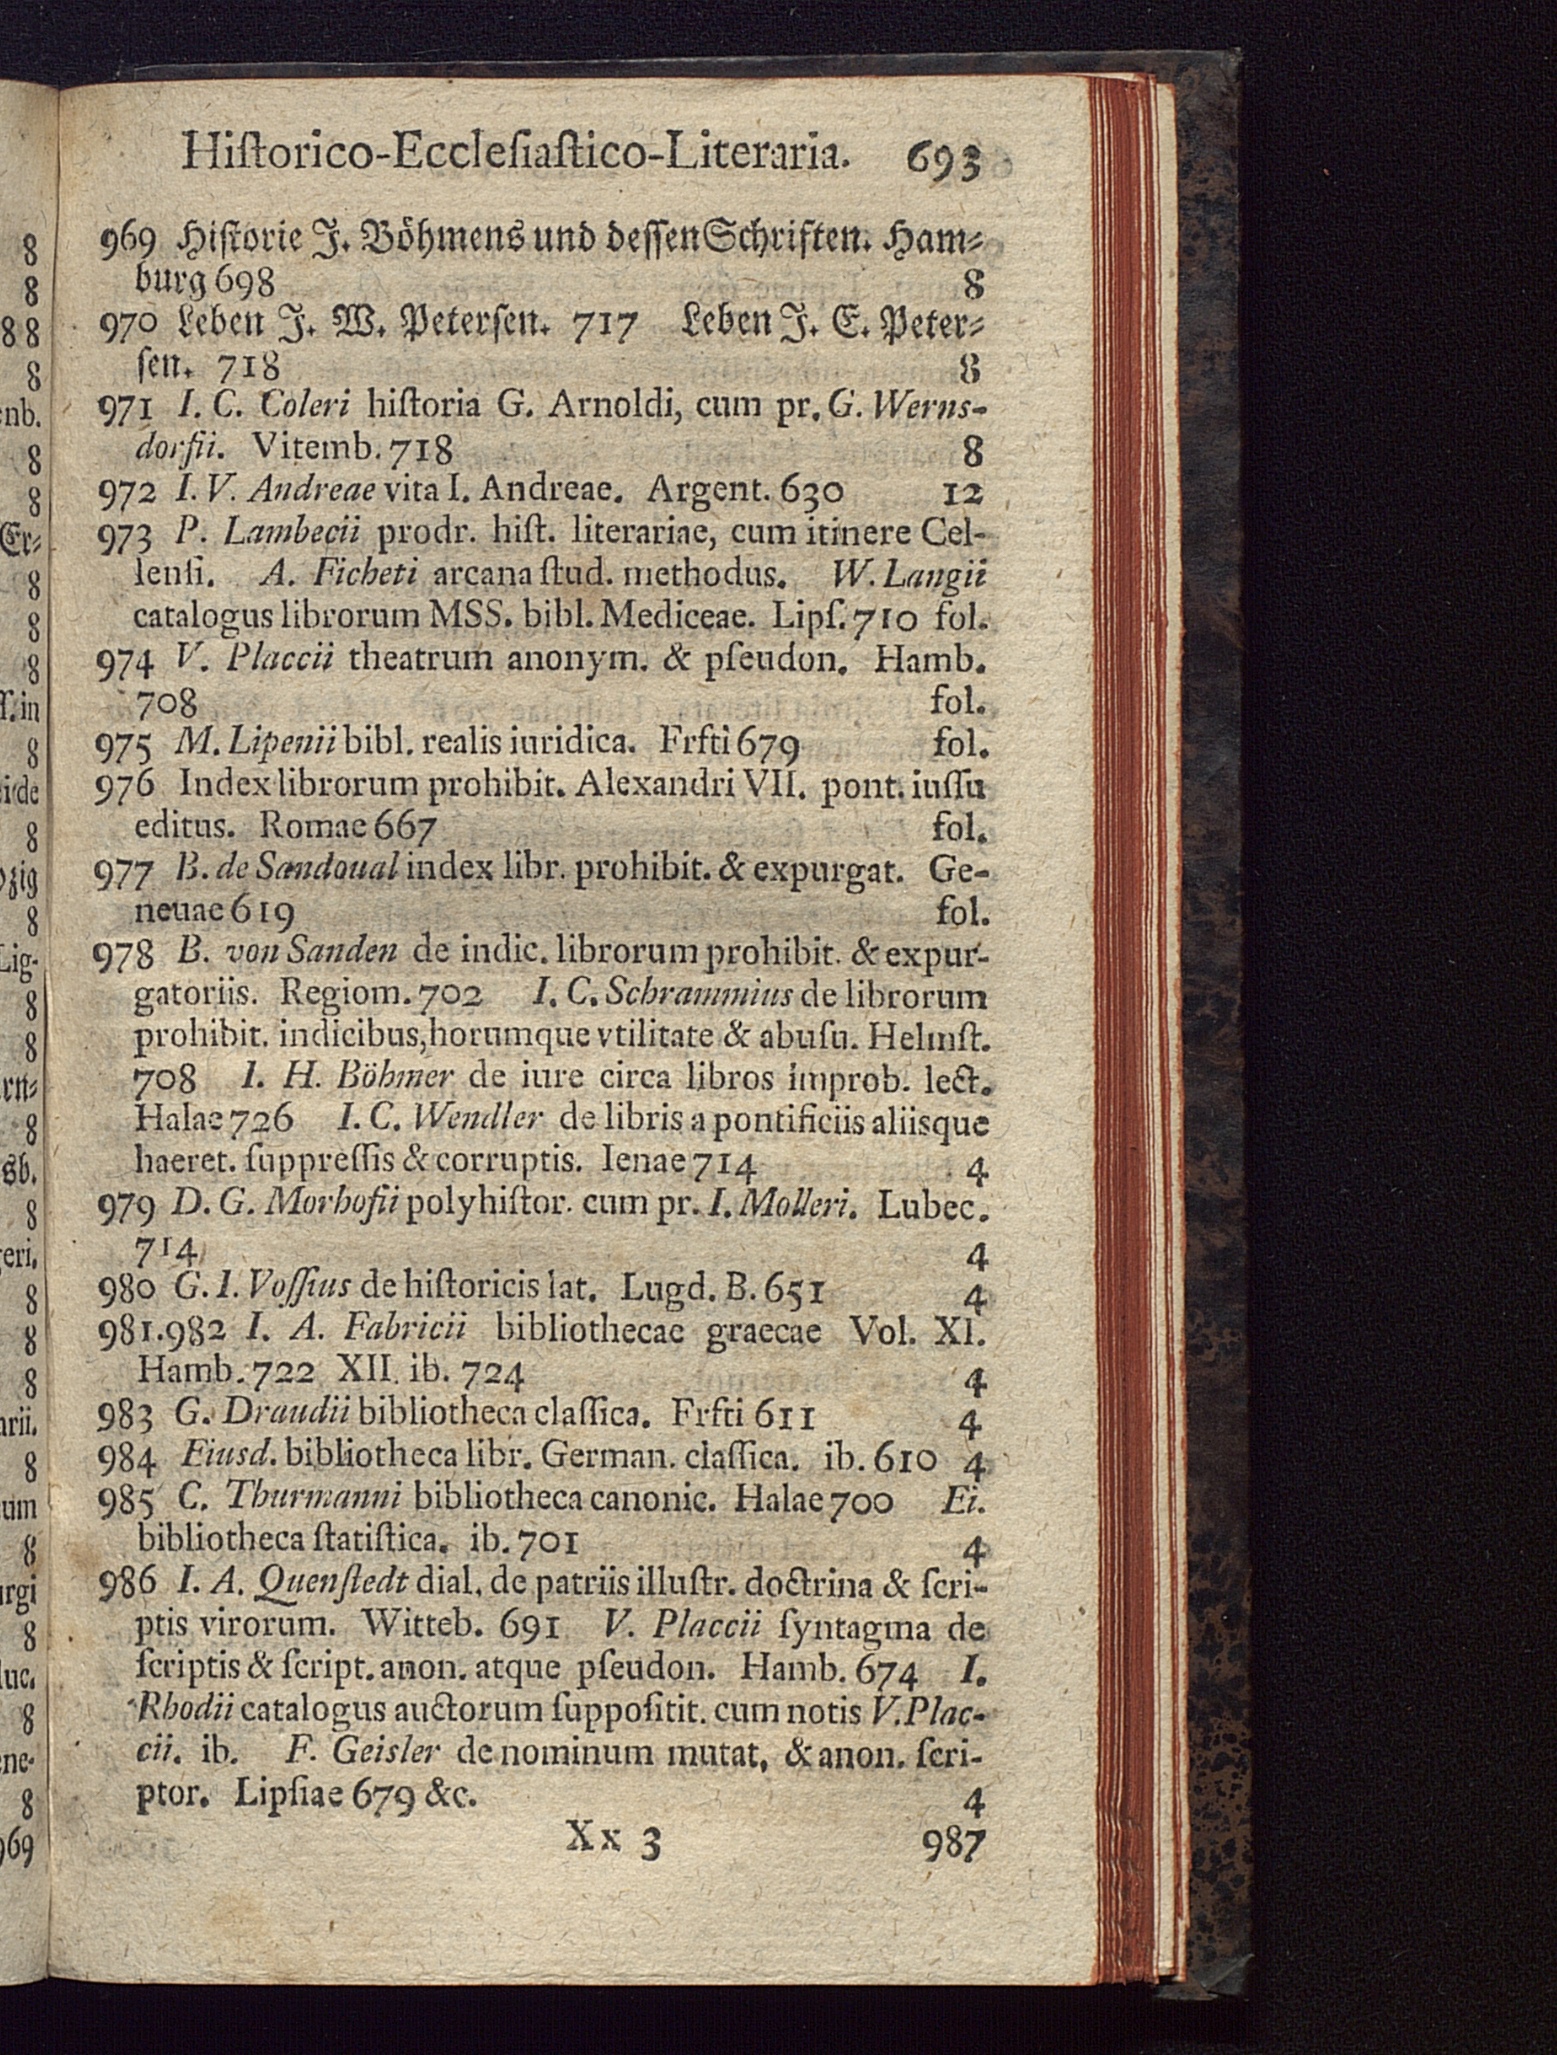 Hiſtorico-Eccleſiaſtico-Literaria. 693
969 Hiſtorie J. Böhmens und deſſen Schriften. Ham-
burg 698 8
970 Leben J. W. Peterſen. 717 Leben J. E. Peter-
ſen. 718 8
971 I. C. Coleri hiſtoria G. Arnoldi, cum pr. G. Werns-
dorfii. Vitemb. 718 8
972 I. V. Andreae vita I. Andreae. Argent. 630 12
973 P. Lambecii prodr. hiſt. literariae, cum itinere Cel-
lenſi. A. Ficheti arcana ſtud. methodus. W. Langii
catalogus librorum MSS. bibl. Mediceae. Lipſ. 710 fol.
974 V. Placcii theatrum anonym. & pſeudon. Hamb.
708 fol.
975 M. Lipenii bibl. realis iuridica. Frfti 679 fol.
976 Index librorum prohibit. Alexandri VII. pont. iuſſu
editus. Romae 667 fol.
977 B. de Sandoual index libr. prohibit. & expurgat. Ge-
neuae 619 fol.
978 B. von Sanden de indic. librorum prohibit. & expur-
gatoriis. Regiom. 702 I. C. Schrammius de librorum
prohibit. indicibus, horumque vtilitate & abuſu. Helmſt.
708 I. H. Böhmer de iure circa libros improb. lect.
Halae 726 I. C. Wendler de libris a pontificiis aliisque
haeret. ſuppreſſis & corruptis. Ienae 714 4
979 D. G. Morhofii polyhiſtor. cum pr. I. Molleri. Lubec.
714 4
980 G. I. Voſſius de hiſtoricis lat. Lugd. B. 651 4
981.982 I. A. Fabricii bibliothecae graecae Vol. XI.
Hamb. 722 XII. ib. 724 4
983 G. Draudii bibliotheca claſſica. Frfti 611 4
984 Eiusd. bibliotheca libr. German. claſſica. ib. 610 4
985 C. Thurmanni bibliotheca canonic. Halae 700 Ei.
bibliotheca ſtatiſtica. ib. 701 4
986 I. A. Quenſtedt dial. de patriis illuſtr. doctrina & ſcri-
ptis virorum. Witteb. 691 V. Placcii ſyntagma de
ſcriptis & ſcript. anon. atque pſeudon. Hamb. 674 I.
Rhodii catalogus auctorum ſuppoſitit. cum notis V. Plac-
cii. ib. F. Geisler de nominum mutat. & anon. ſcri-
ptor. Lipſiae 679 &c. 4
Xx 3 987